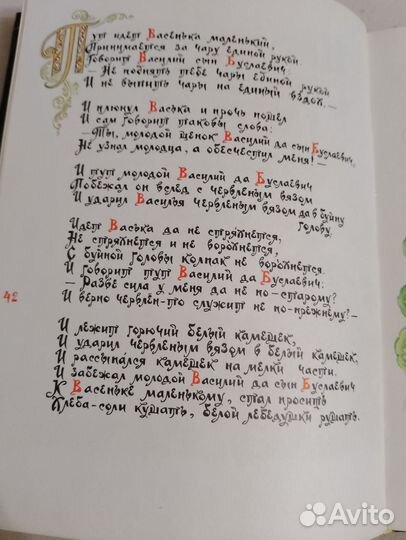 Тут идет Васенька маленький,
Принимается за чару единой рукой
Говорит Василий сын Буслаевич:
— Не поднять тебе чары единой рукой
И не выпить чары на единый вздох.—
И плюнул Васька и прочь пошел
И сам говорит таковы слова:
—Ты, молодой щенок Василий да сын Буслаевич,
Не узнал молодца, а обесчестил меня!—
И тут молодой Василий да Буслаевич
Побежал он вслед с червленым вязом
И ударил Василья червленым вязом да в буйну
голову.
Идет Васька да не стряхнется,
Не стряхнется и не воро́нется,
С буйной головы колпак не воронется.
И говорит тут Василий да Буслаевич:
— Разве сила у меня да не по-старому?
И верно червлен-то служит не по-прежнему?—
42
И лежит горючий белый камешек,
И ударил червленым вязом в белый камешек
И рассыпался камешек на мелки части.
И забежал молодой Василий да сын Буслаевич
К Васеньке маленькому, стал просить
Хлеба-соли кушать, белой лебедушки рушать.
Avito